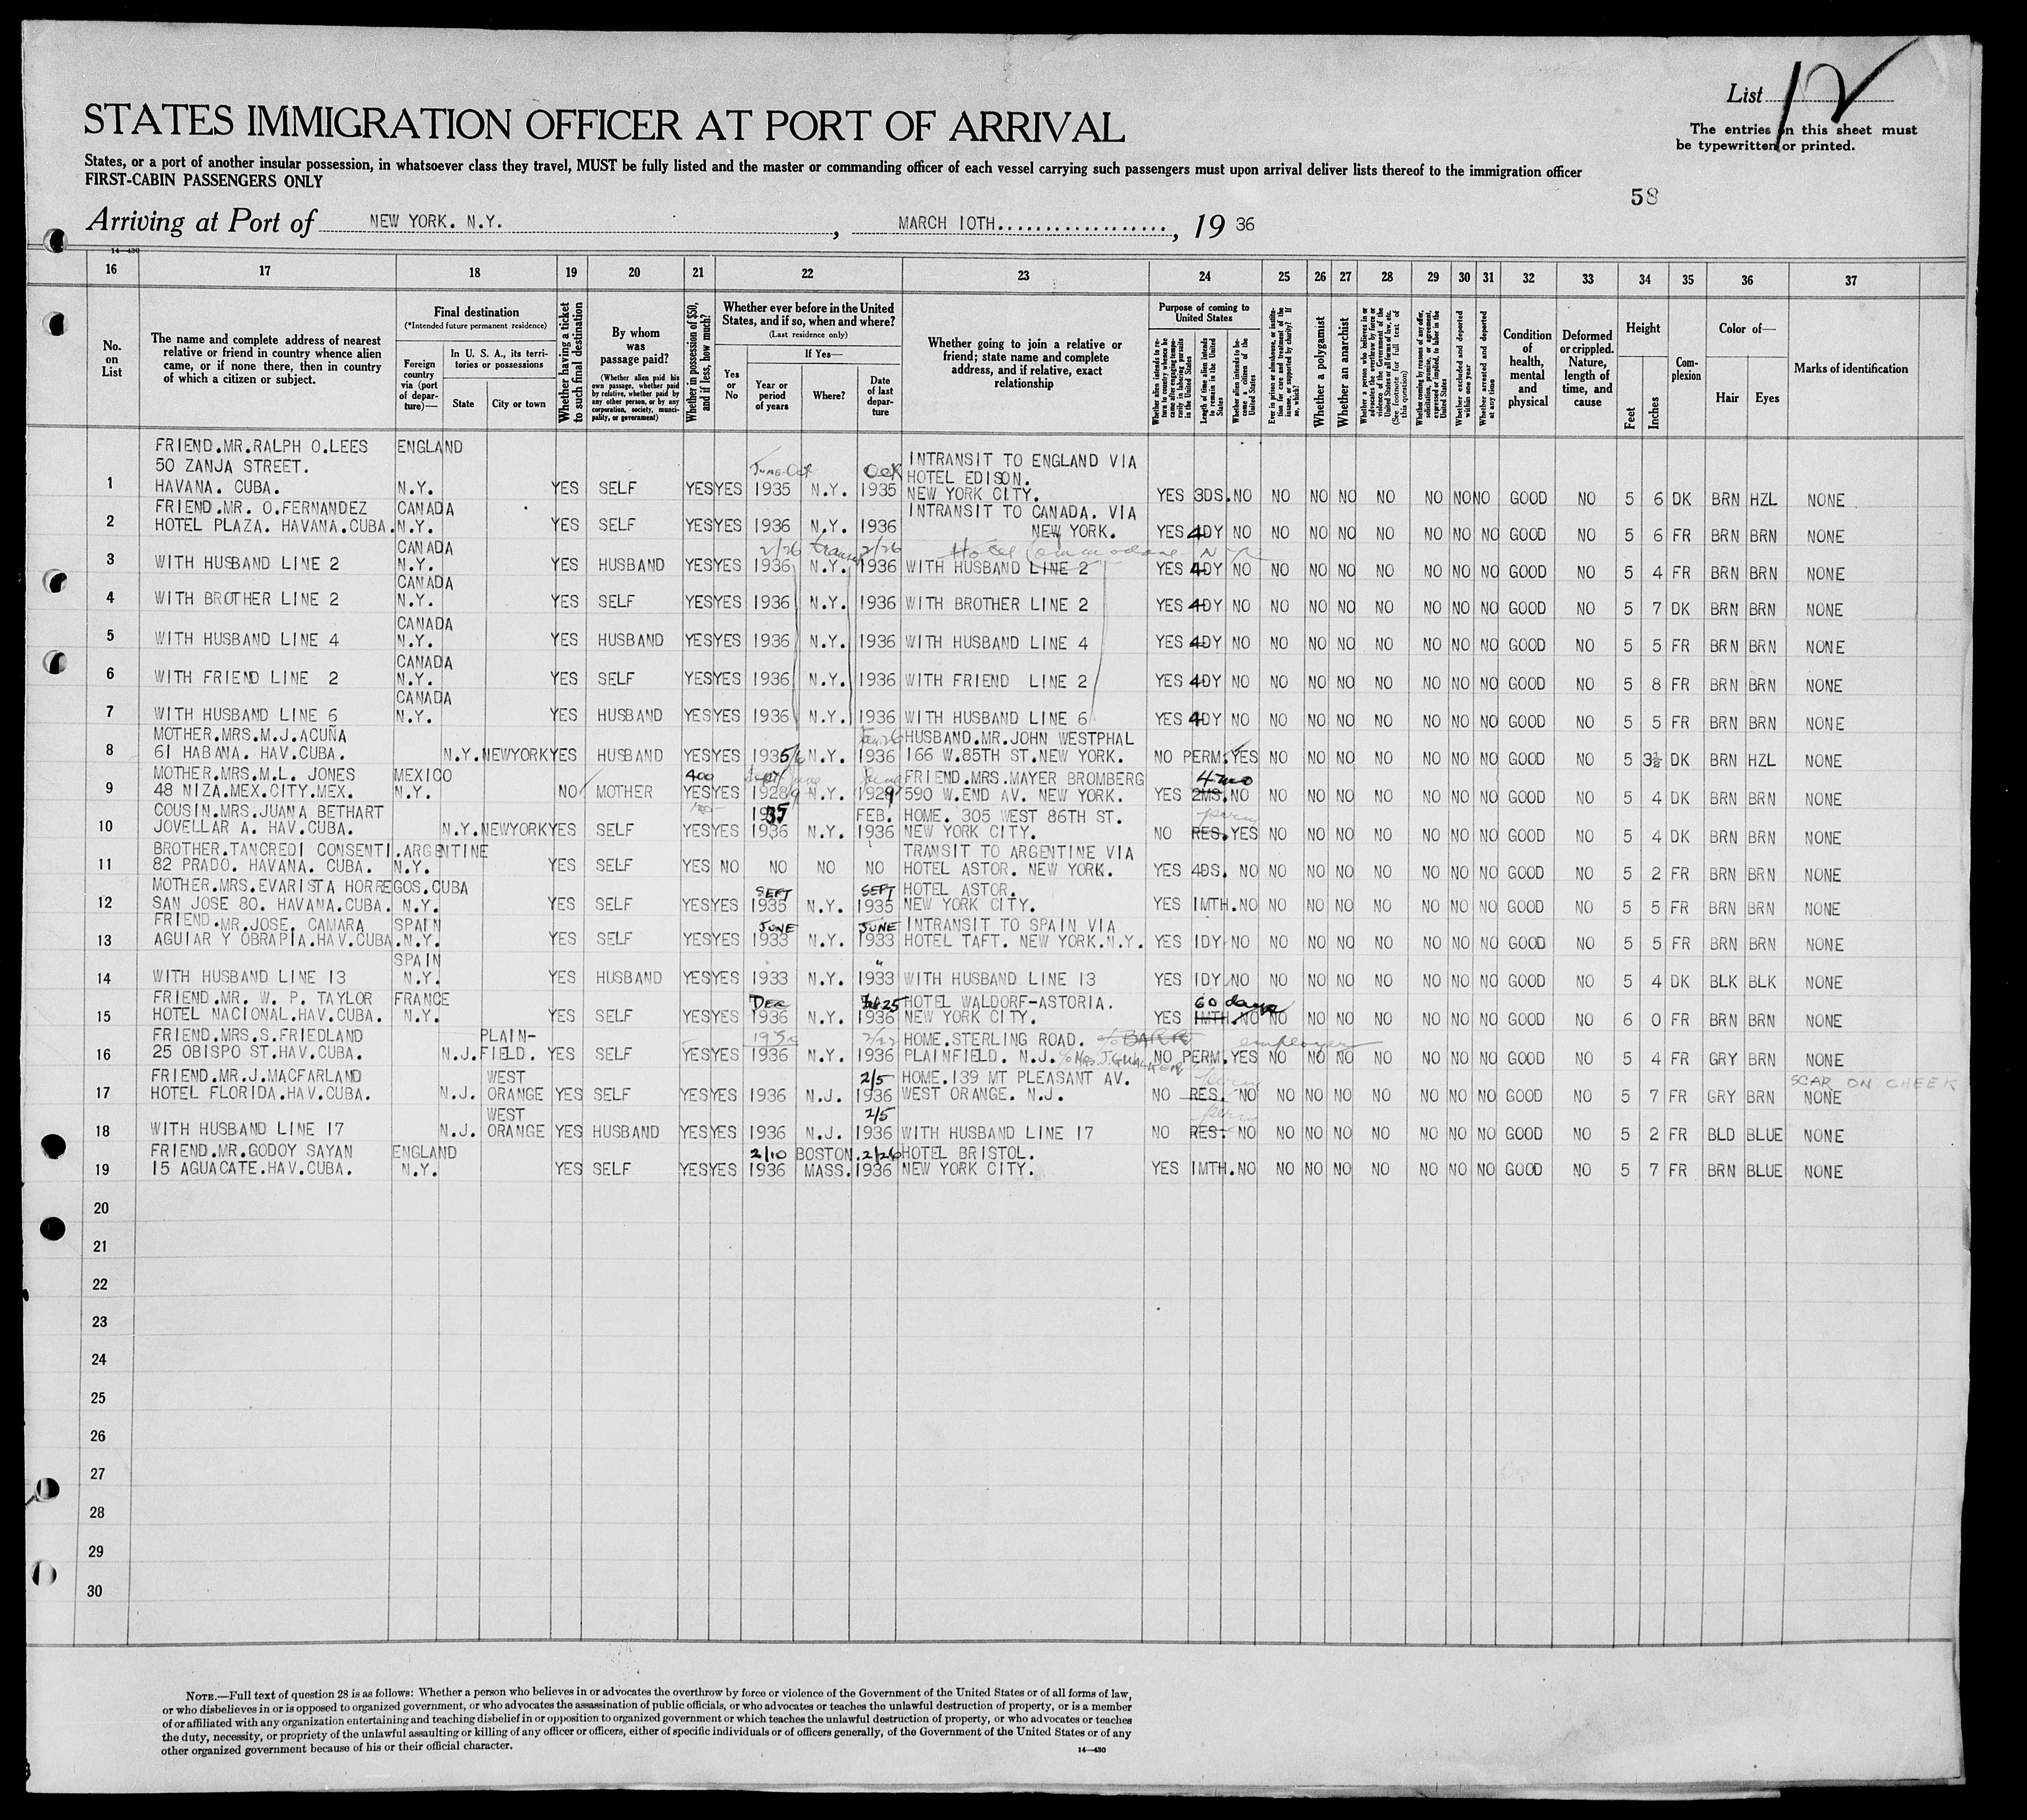 List 12
STATES IMMIGRATION OFFICER AT PORT OF ARRIVAL
The entries on this sheet must
be typewritten or printed.
States, or a port of another insular possession, in whatsoever class they travel, MUST be fully listed and the master or commanding officer of each vessel carrying such passengers must upon arrival deliver lists thereof to the immigration officer
FIRST-CABIN PASSENGERS ONLY
58
Arriving at Port of NEW YORK. N.Y. , MARCH 10TH , 19 36
14—430
16 17 18 19 20 21 22 23 24 25 26 27 28 29 30 31 32 33 34 35 36 37
No. on List
The name and complete address of nearest relative or friend in country whence alien came, or if none there, then in country of which a citizen or subject.
Final destination
(*Intended future permanent residence)
Foreign country via (port of departure)—
In U. S. A., its territories or possessions
State
City or town
Whether having a ticket to such final destination
By whom was passage paid?
(Whether alien paid his own passage, whether paid by relative, whether paid by any other person, or by any corporation, society, municipality, or government)
Whether in possession of $50, and if less, how much?
Whether ever before in the United States, and if so, when and where?
(Last residence only)
Yes or No
If Yes—
Year or period of years
Where?
Date of last departure
Whether going to join a relative or friend; state name and complete address, and if relative, exact relationship
Purpose of coming to United States
Whether alien intends to return to country whence he came after engaging temporarily in laboring pursuits in the United States
Length of time alien intends to remain in the United States
Whether alien intends to become a citizen of the United States
Ever in prison or almshouse, or institution for care and treatment of the insane, or supported by charity? If so, which?
Whether a polygamist
Whether an anarchist
Whether a person who believes in or advocates the overthrow by force or violence of the Government of the United States or all forms of law, etc. (See footnote for full text of this question)
Whether coming by reason of any offer, solicitation, promise, or agreement, expressed or implied, to labor in the United States
Whether excluded and deported within one year
Whether arrested and deported at any time
Condition of health, mental and physical
Deformed or crippled. Nature, length of time, and cause
Height
Feet
Inches
Complexion
Color of—
Hair
Eyes
Marks of identification
FRIEND.MR.RALPH O.LEES ENGLAND
50 ZANJA STREET. June-Oct Oct INTRANSIT TO ENGLAND VIA
HOTEL EDISON.
1 HAVANA. CUBA. N.Y. YES SELF YES YES 1935 N.Y. 1935 NEW YORK CITY. YES 3DS. NO NO NO NO NO NO NO NO GOOD NO 5 6 DK BRN HZL NONE
FRIEND.MR. O.FERNANDEZ CANADA INTRANSIT TO CANADA. VIA
2 HOTEL PLAZA. HAVANA.CUBA. N.Y. YES SELF YES YES 1936 N.Y. 1936 NEW YORK. YES 4DY NO NO NO NO NO NO NO NO GOOD NO 5 6 FR BRN BRN NONE
CANADA 2/26 transit 2/26 Hotel Commodore N Y
3 WITH HUSBAND LINE 2 N.Y. YES HUSBAND YES YES 1936 N.Y. 1936 WITH HUSBAND LINE 2 YES 4DY NO NO NO NO NO NO NO NO GOOD NO 5 4 FR BRN BRN NONE
CANADA
4 WITH BROTHER LINE 2 N.Y. YES SELF YES YES 1936 N.Y. 1936 WITH BROTHER LINE 2 YES 4DY NO NO NO NO NO NO NO NO GOOD NO 5 7 DK BRN BRN NONE
CANADA
5 WITH HUSBAND LINE 4 N.Y. YES HUSBAND YES YES 1936 N.Y. 1936 WITH HUSBAND LINE 4 YES 4DY NO NO NO NO NO NO NO NO GOOD NO 5 5 FR BRN BRN NONE
CANADA
6 WITH FRIEND LINE 2 N.Y. YES SELF YES YES 1936 N.Y. 1936 WITH FRIEND LINE 2 YES 4DY NO NO NO NO NO NO NO NO GOOD NO 5 8 FR BRN BRN NONE
CANADA
7 WITH HUSBAND LINE 6 N.Y. YES HUSBAND YES YES 1936 N.Y. 1936 WITH HUSBAND LINE 6 YES 4DY NO NO NO NO NO NO NO NO GOOD NO 5 5 FR BRN BRN NONE
MOTHER.MRS.M.J.ACUÑA HUSBAND.MR.JOHN WESTPHAL
8 61 HABANA. HAV.CUBA. N.Y. NEWYORK YES HUSBAND YES YES 1935/6 N.Y. 1936 166 W.85TH ST.NEW YORK. NO PERM. YES NO NO NO NO NO NO NO GOOD NO 5 3½ DK BRN HZL NONE
MOTHER.MRS.M.L. JONES MEXICO 400 Sept June FRIEND.MRS.MAYER BROMBERG 4 mo
9 48 NIZA.MEX.CITY.MEX. N.Y. NO MOTHER YES YES 1928/9 N.Y. 1929 590 W.END AV. NEW YORK. YES 2MS. NO NO NO NO NO NO NO NO GOOD NO 5 4 DK BRN BRN NONE
COUSIN.MRS.JUANA BETHART 1935 FEB. HOME. 305 WEST 86TH ST. perm
10 JOVELLAR A. HAV.CUBA. N.Y. NEWYORK YES SELF YES YES 1936 N.Y. 1936 NEW YORK CITY. NO RES. YES NO NO NO NO NO NO NO GOOD NO 5 4 DK BRN BRN NONE
BROTHER.TANCREDI CONSENTI.ARGENTINE TRANSIT TO ARGENTINE VIA
11 82 PRADO. HAVANA. CUBA. N.Y. YES SELF YES NO NO NO NO HOTEL ASTOR. NEW YORK. YES 4DS. NO NO NO NO NO NO NO NO GOOD NO 5 2 FR BRN BRN NONE
MOTHER.MRS.EVARISTA HORREGOS.CUBA SEPT SEPT HOTEL ASTOR.
12 SAN JOSE 80. HAVANA.CUBA. N.Y. YES SELF YES YES 1935 N.Y. 1935 NEW YORK CITY. YES 1MTH. NO NO NO NO NO NO NO NO GOOD NO 5 5 FR BRN BRN NONE
FRIEND.MR.JOSE. CAMARA SPAIN JUNE JUNE INTRANSIT TO SPAIN VIA
13 AGUIAR Y OBRAPIA.HAV.CUBA. N.Y. YES SELF YES YES 1933 N.Y. 1933 HOTEL TAFT. NEW YORK.N.Y. YES 1DY NO NO NO NO NO NO NO NO GOOD NO 5 5 FR BRN BRN NONE
SPAIN " "
14 WITH HUSBAND LINE 13 N.Y. YES HUSBAND YES YES 1933 N.Y. 1933 WITH HUSBAND LINE 13 YES 1DY NO NO NO NO NO NO NO NO GOOD NO 5 4 DK BLK BLK NONE
FRIEND.MR. W. P. TAYLOR FRANCE Dec 25 HOTEL WALDORF-ASTORIA. 60 days
15 HOTEL NACIONAL.HAV.CUBA. N.Y. YES SELF YES YES 1936 N.Y. 1936 NEW YORK CITY. YES 1MTH. NO NO NO NO NO NO NO NO GOOD NO 6 0 FR BRN BRN NONE
FRIEND.MRS.S.FRIEDLAND PLAIN- HOME.STERLING ROAD. employer
16 25 OBISPO ST.HAV.CUBA. N.J. FIELD. YES SELF YES YES 1936 N.Y. 1936 PLAINFIELD. N.J. NO PERM. YES NO NO NO NO NO NO NO GOOD NO 5 4 FR GRY BRN NONE
FRIEND.MR.J.MACFARLAND WEST 2/5 HOME.139 MT PLEASANT AV. perm SCAR ON CHEEK
17 HOTEL FLORIDA.HAV.CUBA. N.J. ORANGE YES SELF YES YES 1936 N.J. 1936 WEST ORANGE. N.J. NO RES. NO NO NO NO NO NO NO NO GOOD NO 5 7 FR GRY BRN NONE
WEST 2/5 perm
18 WITH HUSBAND LINE 17 N.J. ORANGE YES HUSBAND YES YES 1936 N.J. 1936 WITH HUSBAND LINE 17 NO RES. NO NO NO NO NO NO NO NO GOOD NO 5 2 FR BLD BLUE NONE
FRIEND.MR.GODOY SAYAN ENGLAND 2/10 BOSTON. 2/26 HOTEL BRISTOL.
19 15 AGUACATE.HAV.CUBA. N.Y. YES SELF YES YES 1936 MASS. 1936 NEW YORK CITY. YES 1MTH. NO NO NO NO NO NO NO NO GOOD NO 5 7 FR BRN BLUE NONE
20
21
22
23
24
25
26
27
28
29
30
NOTE.—Full text of question 28 is as follows: Whether a person who believes in or advocates the overthrow by force or violence of the Government of the United States or of all forms of law,
or who disbelieves in or is opposed to organized government, or who advocates the assassination of public officials, or who advocates or teaches the unlawful destruction of property, or is a member
of or affiliated with any organization entertaining and teaching disbelief in or opposition to organized government or which teaches the unlawful destruction of property, or who advocates or teaches
the duty, necessity, or propriety of the unlawful assaulting or killing of any officer or officers, either of specific individuals or of officers generally, of the Government of the United States or of any
other organized government because of his or their official character.
14—430